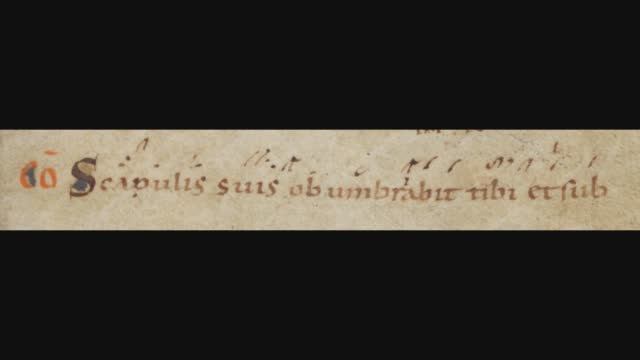 cō Scapulis suis obumbrabit tibi et sub